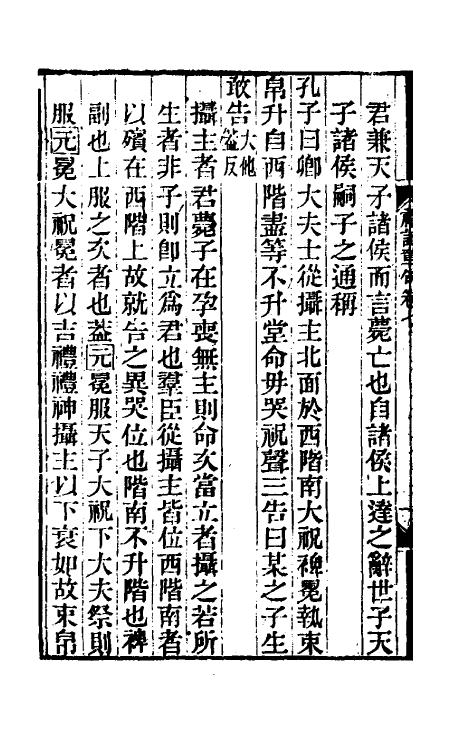 君兼天子諸侯而言薨亡也自諸侯上達之辭世子天
子諸侯嗣子之通稱
孔子曰卿大夫士從攝主北面於西階南大祝裨冕執束
帛升自西階盡等不升堂命毋哭祝聲三告曰某之子生
敢告大他益反
攝主者君薨子在孕喪無主則命次當立者攝之若所
生者非子則卽立爲君也羣臣從攝主皆位西階南者
以殯在西階上故就告之異哭位也階南不升階也裨
副也上服之次者也蓋元冕服天子大祝下大夫祭則
服元冕大祝冕者以吉禮禮神攝主以下衰如故束帛
禮記章句卷七